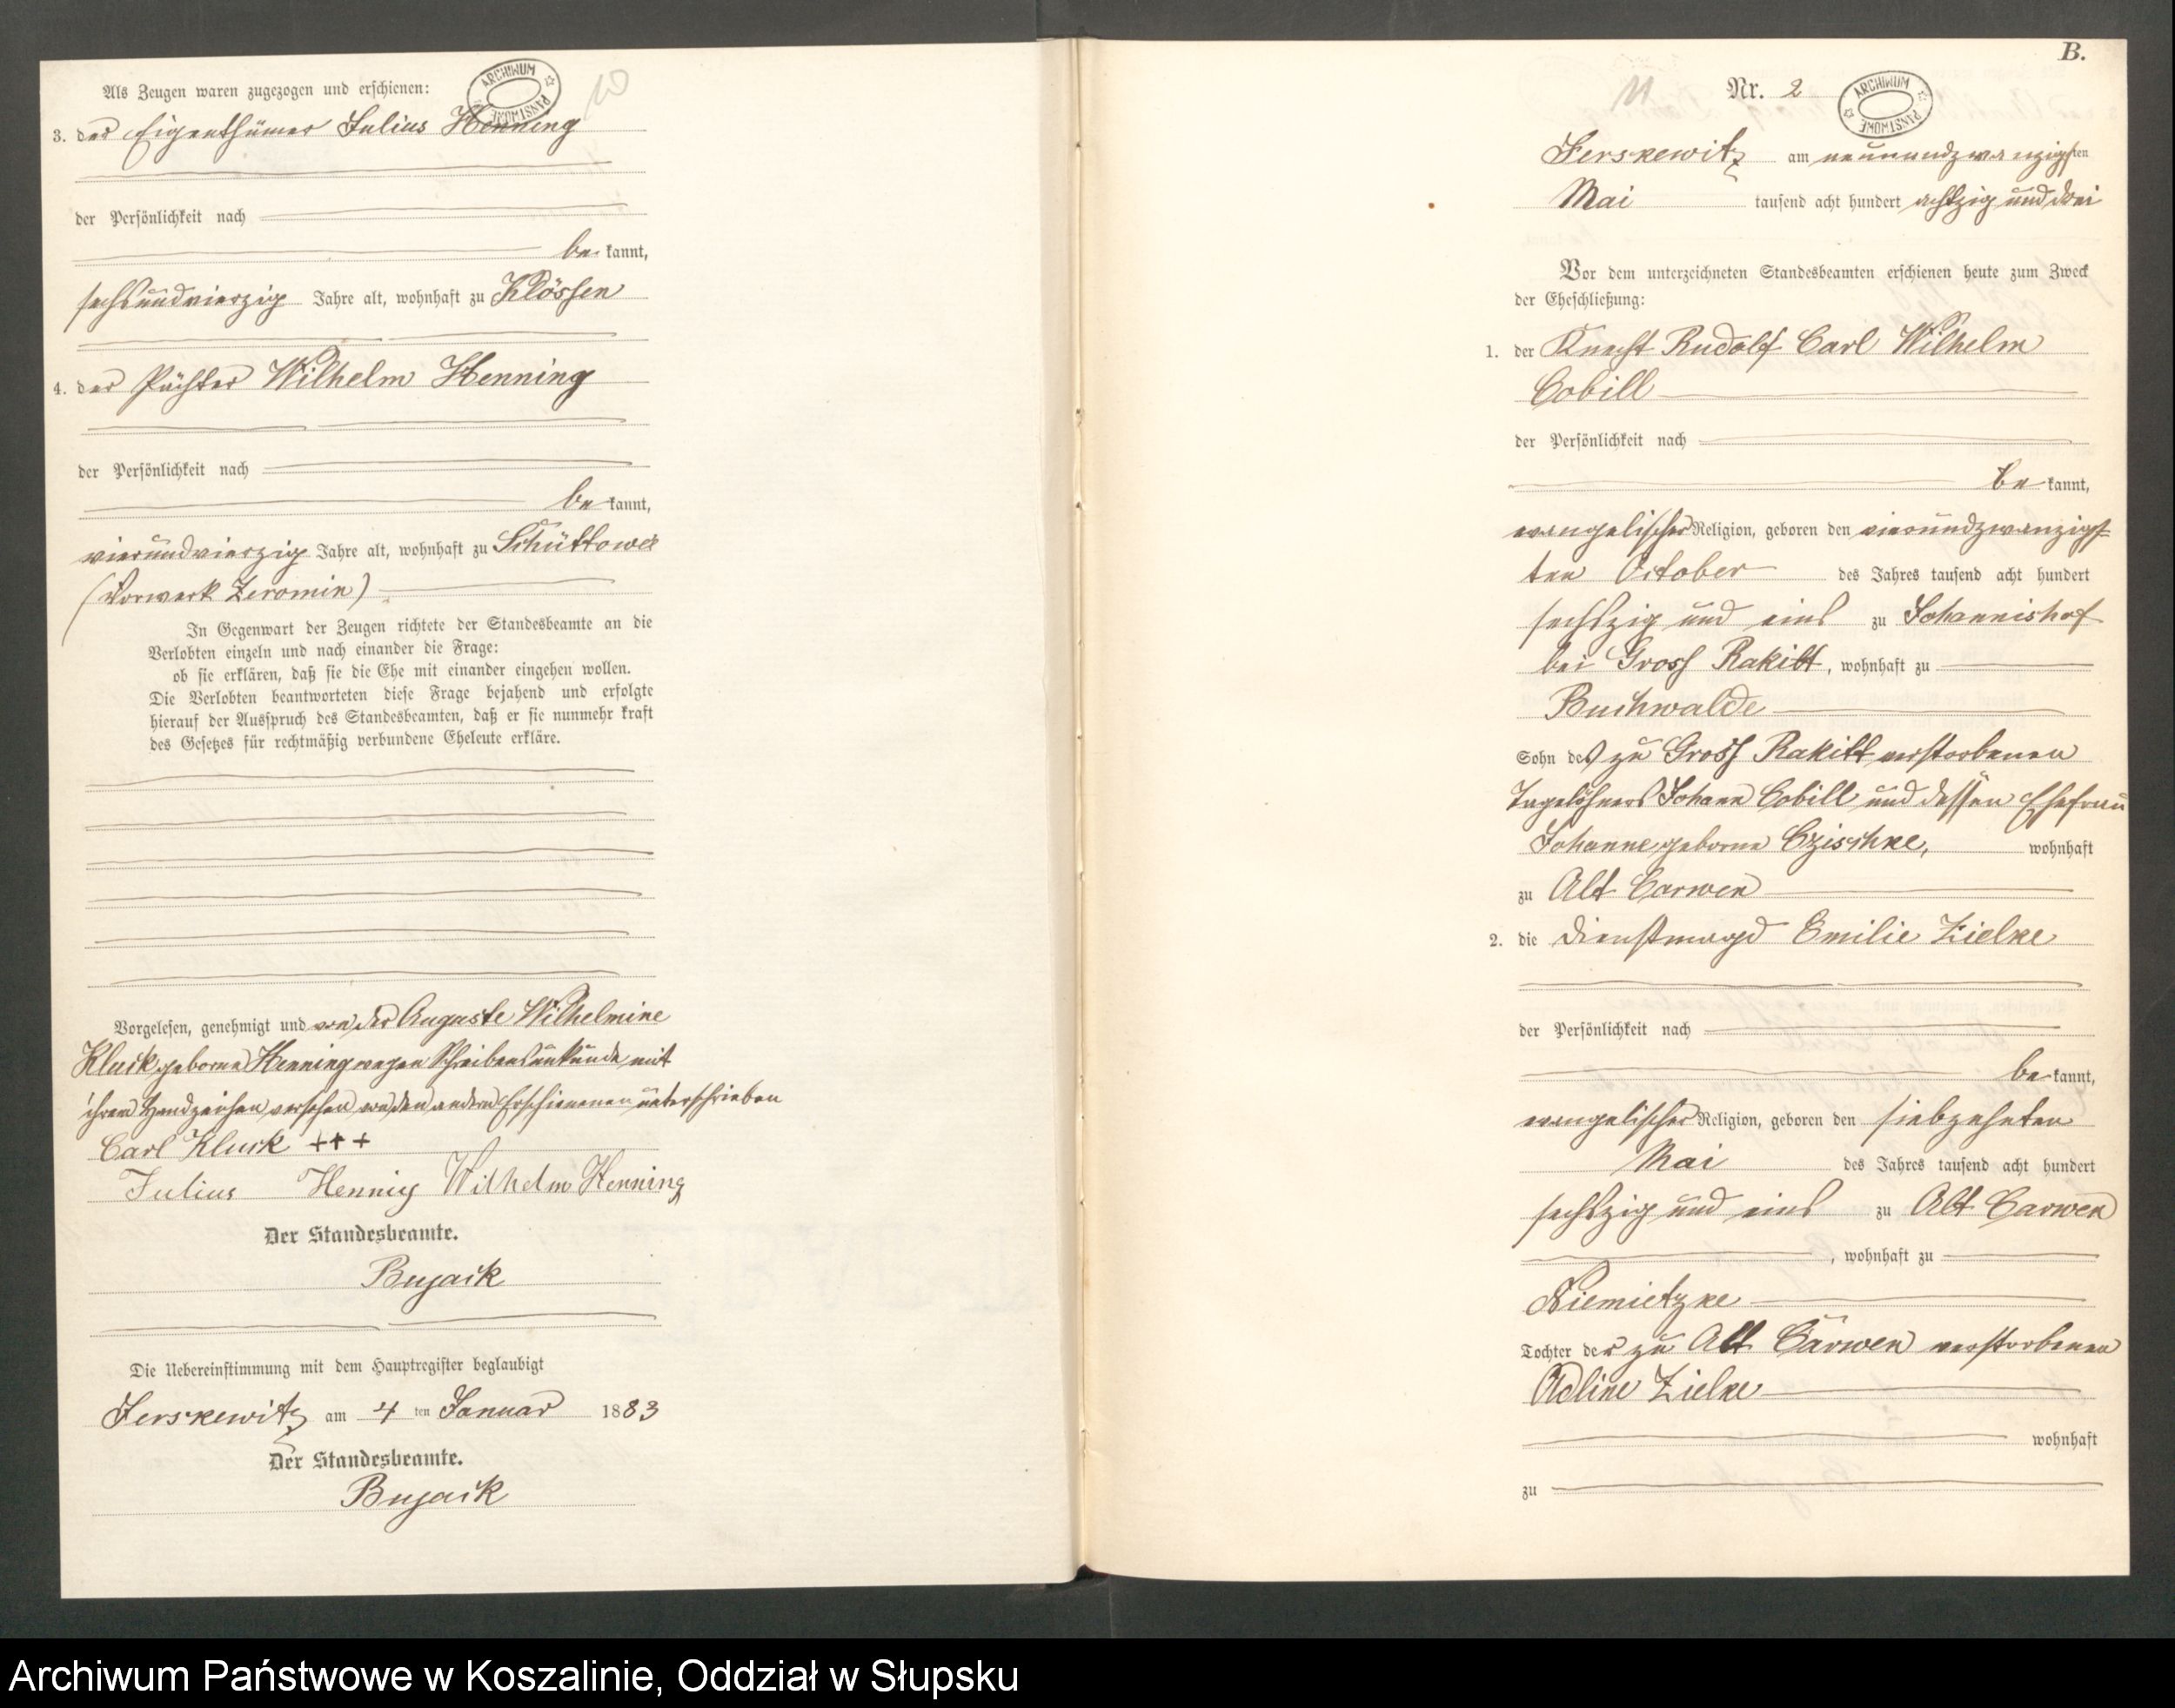 Als Zeugen waren zugezogen und erschienen:
ARCHIWUM PAŃSTWOWE
10
3. der Eigenthümer Julius Henning
der Persönlichkeit nach
be kannt,
sechsundvierzig Jahre alt, wohnhaft zu Klössen
4. der Pächter Wilhelm Henning
der Persönlichkeit nach
be kannt,
vierundvierzig Jahre alt, wohnhaft zu Schüttower
(Vorwerk Zeromin)
In Gegenwart der Zeugen richtete der Standesbeamte an die
Verlobten einzeln und nach einander die Frage:
ob sie erklären, daß sie die Ehe mit einander eingehen wollen.
Die Verlobten beantworteten diese Frage bejahend und erfolgte
hierauf der Ausspruch des Standesbeamten, daß er sie nunmehr kraft
des Gesetzes für rechtmäßig verbundene Eheleute erkläre.
Vorgelesen, genehmigt und von der Auguste Wilhelmine
Kluck geborne Henning wegen Schreibensunkunde mit
ihrem Handzeichen versehen von den andern Erschienenen unterschrieben
Carl Kluck +++
Julius Hennig Wilhelm Henning
Der Standesbeamte.
Bujack
Die Uebereinstimmung mit dem Hauptregister beglaubigt
Jerskewitz am 4 ten Januar 1883
Der Standesbeamte.
Bujack
B.
11
Nr. 2
ARCHIWUM PAŃSTWOWE
Jerskewitz am neunundzwanzigsten
Mai tausend acht hundert achtzig und drei
Vor dem unterzeichneten Standesbeamten erschienen heute zum Zweck
der Eheschließung:
1. der Knecht Rudolf Carl Wilhelm
Cobill
der Persönlichkeit nach
be kannt,
evangelischer Religion, geboren den vierundzwanzigs=
ten October des Jahres tausend acht hundert
sechszig und eins zu Johannishof
bei Gross Rakitt, wohnhaft zu
Buchwalde
Sohn des zu Gross Rakitt verstorbenen
Tagelöhners Johann Cobill und dessen Ehefrau
Johanne geborne Czischke, wohnhaft
zu Alt Carwen
2. die Dienstmagd Emilie Zielke
der Persönlichkeit nach
be kannt,
evangelischer Religion, geboren den siebzehnten
Mai des Jahres tausend acht hundert
sechszig und eins zu Alt Carwen
, wohnhaft zu
Niemietzke
Tochter der zu Alt Carwen verstorbenen
Adline Zielke
wohnhaft
zu
Archiwum Państwowe w Koszalinie, Oddział w Słupsku